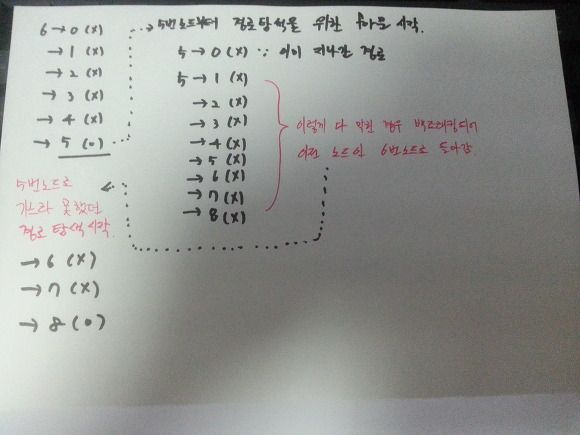 6→0 (x)
→1 (x)
→2 (x)
→3 (x)
→4 (x)
→5 (o)
5번노드부터 경로탐색을 위한 for문 시작.
5→0 (x) ∵ 이미 지나간 경로
5→1 (x)
→2 (x)
→3 (x)
→4 (x)
→5 (x)
→6 (x)
→7 (x)
→8 (x)
이렇게 다 막힌 경우 백트래킹되어
이전 노드인 6번노드로 돌아감
5번노드로
가느라 못했던
경로 탐색 시작.
→6 (x)
→7 (x)
→8 (o)